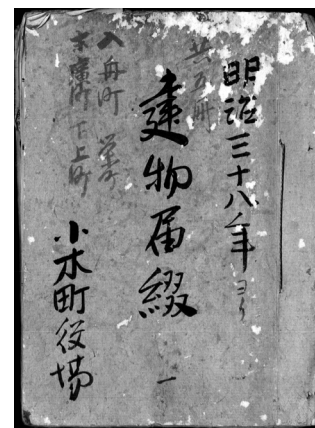 明治三十八年ヨリ
共五冊
建物届綴
一
入舟町 栄町
木崎町 下上町
小木町役場